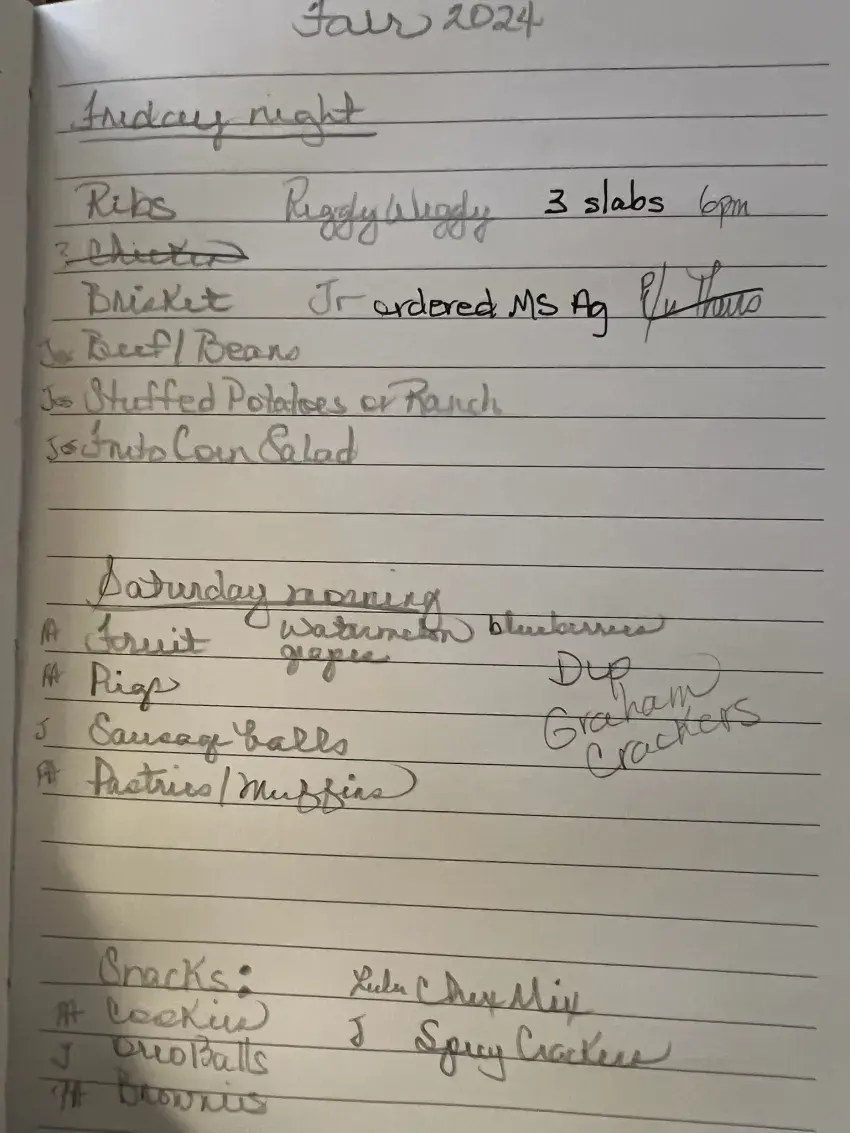 Fair 2024
Friday night
Ribs Piggly Wiggly 3 slabs 6pm
? Chicken
Brisket Jr ordered MS Ag P/u Thurs
Beef/Beans
Stuffed Potatoes or Ranch
Frito Corn Salad
Saturday morning
A Fruit Watermelon blueberries
grapes
Dip
A Pigs
Graham
Crackers
J Sausage balls
A Pastries/Muffins
Snacks: Lulu Chex Mix
A Cookies J Spicy Crackers
J Oreo Balls
A Brownies